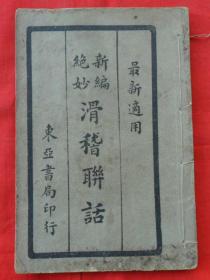 最新適用
新編
絕妙
滑稽聯話
東亞書局印行